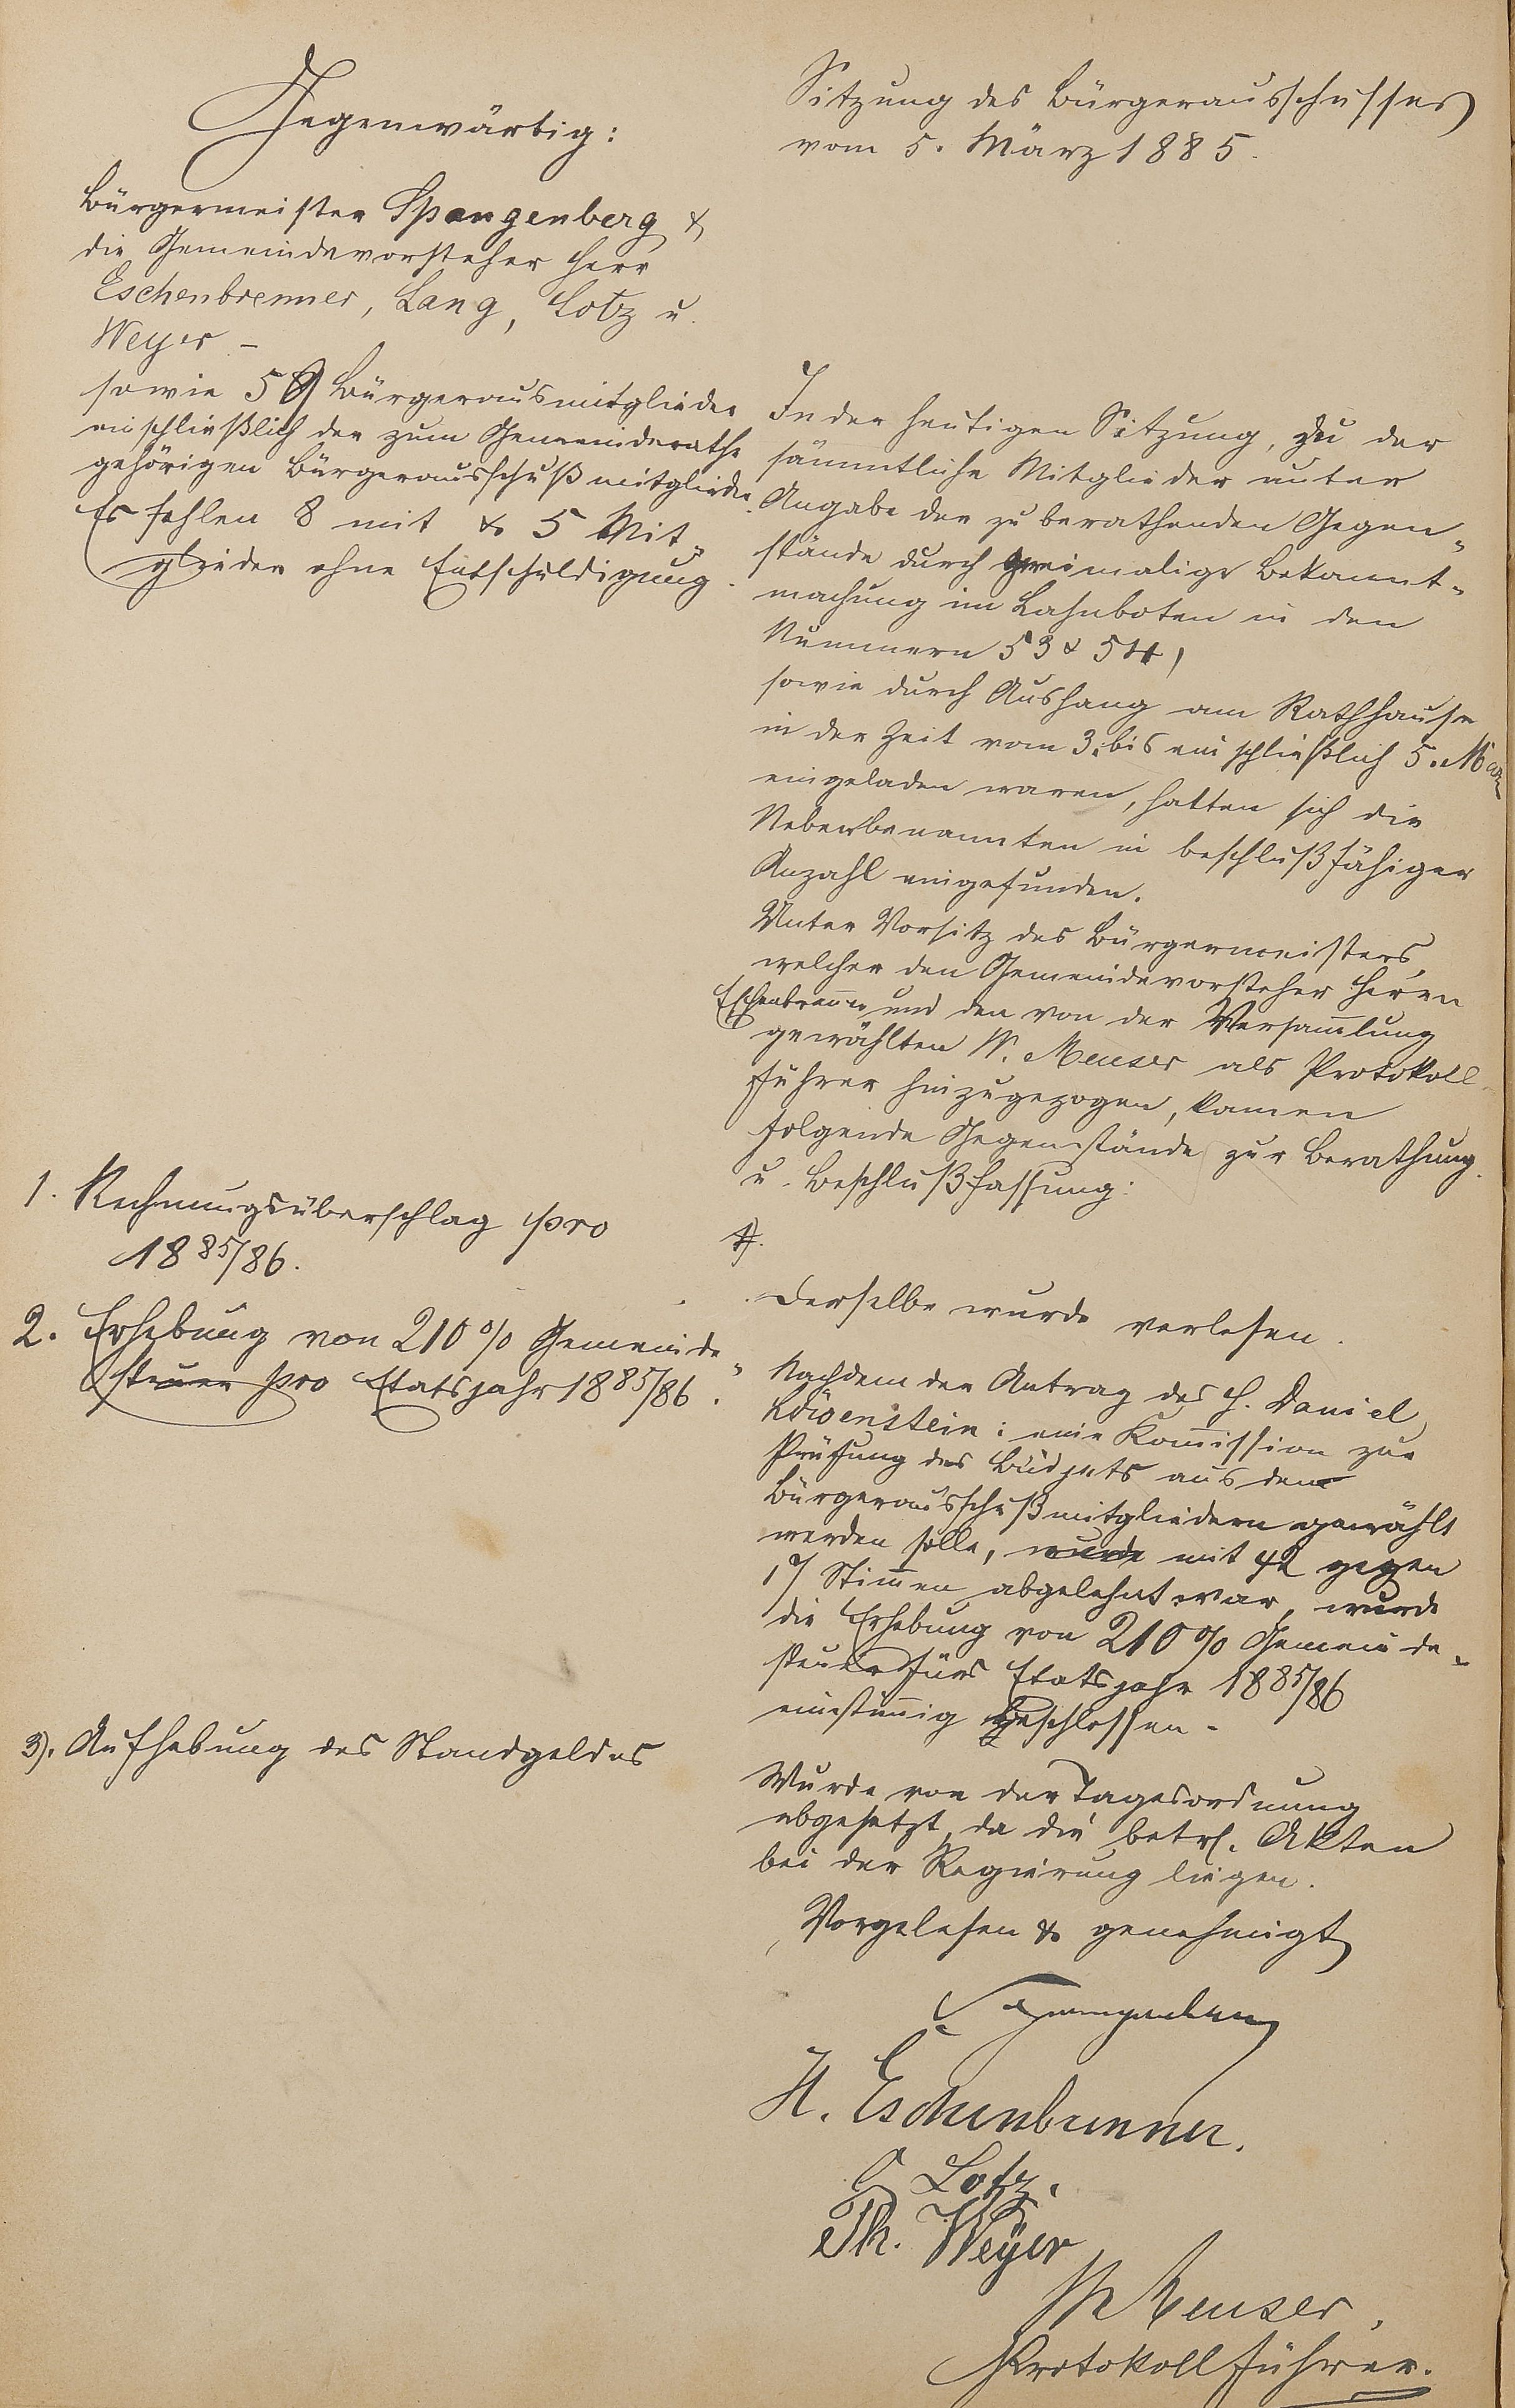 Gegenwärtig:
Bürgermeister Spangenberg &
die Gemeindevorsteher Herr
Eschenbrenner, Lang, Lotz u.
Weyer –
sowie 59 Bürgerausmitglieder
einschließlich der zum Gemeinderathe
gehörigen Bürgerausschußmitglieder.
Es fehlen 8 mit & 5 Mit„
glieder ohne Entschuldigung.
1. Rechnungsüberschlag pro
1885/86.
2. Erhebung von 210% Gemeinde„
steuer pro Etatsjahr 1885/86.
3). Aufhebung des Standgeldes
Sitzung des Bürgerausschusses
vom 5. März 1885.
In der heutigen Sitzung, zu der
sämmtliche Mitglieder unter
Angabe der zu berathenden Gegen„
stände durch zweimalige Bekannt„
machung im Lahnboten in den
Nummern 53 & 54,
sowie durch Aushang am Rathhause
in der Zeit vom 3. bis einschließlich 5. März
eingeladen waren, hatten sich die
Nebenbenannten in beschlußfähiger
Anzahl eingefunden.
Unter Vorsitz des Bürgermeisters,
welcher den Gemeindevorsteher Herrn
Eschenbrenner und den von der Versam̄lung
gewählten W. Meuser als Protokoll-
führer hinzugezogen, kamen
folgende Gegenstände zur Berathung
u. Beschlußfassung:
1).
Derselbe wurde verlesen.
Nachdem der Antrag des H. Daniel
Löwenstein: eine Kom̄ission zur
Prüfung des Büdjets aus den
Bürgerausschußmitgliedern gewählt
werden solle, wurde mit 42 gegen
17 Stim̄en abgelehnt war, wurde
die Erhebung von 210% Gemeinde„
steuer fürs Etatsjahr 1885/86
einstim̄ig beschlossen.
Wurde von der Tagesordnung
abgesetzt, da die betrf. Akten
bei der Regierung liegen.
Vorgelesen & genehmigt
Spangenberg
H. Eschenbrenner.
Lotz.
Th. Weyer
W Meuser,
Protokollführer.